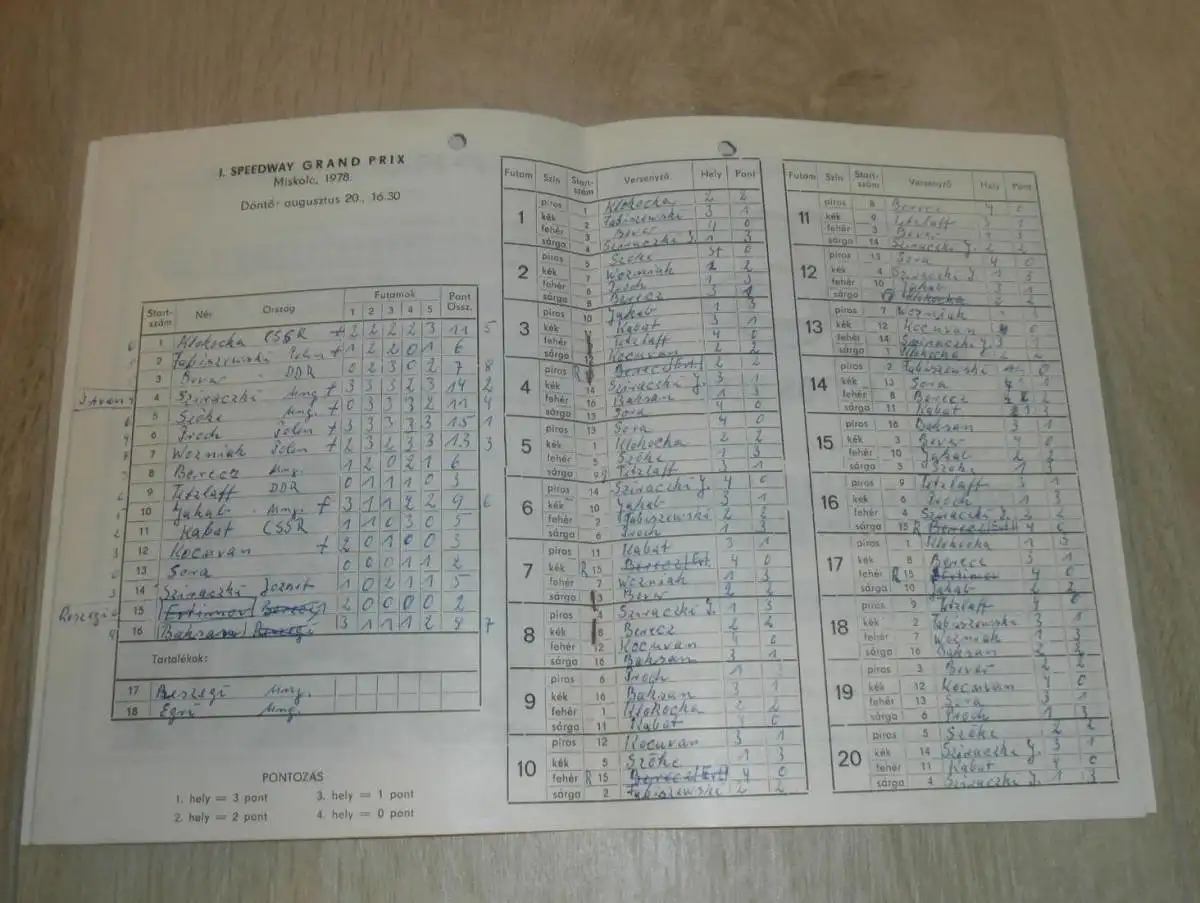 I. SPEEDWAY GRAND PRIX
Miskolc, 1978.
Döntő: augusztus 20., 16.30
Start-szám Név Ország Futamok 1 2 3 4 5 Pont Össz.
1 Klokocha CSSR + 2 2 2 2 3 11 5
2 Tabiszewski Polen + 1 2 2 0 1 6
3 Bever DDR 0 2 3 0 2 7 8
4 Sziraczki Ung. + 3 3 3 2 3 14 2
5 Szőke Ung. + 0 3 3 3 2 11 4
6 Proch Polen + 3 3 3 3 3 15 1
7 Wozniak Polen + 2 3 2 3 3 13 3
8 Berecz Ung. 1 2 0 2 1 6
9 Tetzlaff DDR 0 1 1 1 0 3
10 Jakab Ung. + 3 1 1 2 2 9 6
11 Kabat CSSR 1 1 0 3 0 5
12 Kocuvan + 2 0 1 0 0 3
13 Sora 0 0 0 1 1 2
14 Sziraczki József 1 0 2 1 1 5
15 2 0 0 0 0 2
16 Bahsan 3 1 1 1 2
Tartalékok:
17 Beszegi Ung.
18 Egri Ung.
PONTOZÁS
1. hely = 3 pont 3. hely = 1 pont
2. hely = 2 pont 4. hely = 0 pont
Futam Szín Start-szám Versenyző Hely Pont
1 piros 1 Klokocha 2 2
kék 2 Tabiszewski 3 1
fehér 3 Bever 4 0
sárga 4 Sziraczki J. 1 3
2 piros 5 Szőke st 0
kék 7 Wozniak 2 2
fehér 6 Proch 1 3
sárga 8 Berecz 3 1
3 piros 10 Jakab 1 3
kék Kabat 3 1
fehér Tetzlaff 4 0
sárga 12 Kocuvan
4 piros 2 2
kék 14 Sziraczki J. 3 1
fehér 16 Bahsan 1 3
sárga 13 Sora 4 0
5 piros 13 Sora 4 0
kék 1 Klokocha 2 2
fehér 5 Szőke 1 3
sárga 9 Tetzlaff 3 1
6 piros 14 Sziraczki J. 4 0
kék 10 Jakab 3 1
fehér 2 Tabiszewski 2 2
sárga 6 Proch 1 3
7 piros 11 Kabat 3 1
kék R 15 4 0
fehér 7 Wozniak 1 3
sárga 3 Bever 2 2
8 piros 4 Sziraczki J. 1 3
kék 8 Berecz 2 2
fehér 12 Kocuvan 4 0
sárga 16 Bahsan 3 1
9 piros 6 Proch 1 3
kék 16 Bahsan 3 1
fehér 1 Klokocha 2 2
sárga 11 Kabat 4 0
10 piros 12 Kocuvan 3 1
kék 5 Szőke 1 3
fehér R 15 4 0
sárga 2 Tabiszewski 2 2
Futam Szín Start-szám Versenyző Hely Pont
11 piros 8 Berecz 4 0
kék 9 Tetzlaff 3 1
fehér 3 Bever 1 3
sárga 14 Sziraczki J. 2 2
12 piros 13 Sora 4 0
kék 4 Sziraczki J. 1 3
fehér 10 Jakab 3 1
sárga 2 2
13 piros 7 Wozniak 1 3
kék 12 Kocuvan 0
fehér 14 Sziraczki J. 3 1
sárga 1 Klokocha 2 2
14 piros 2 Tabiszewski 0
kék 13 Sora
fehér 8 Berecz 2
sárga 11 Kabat 1 3
15 piros 16 Bahsan 3 1
kék 3 Bever 4 0
fehér 10 Jakab 2 2
sárga 5 Szőke 1 3
16 piros 9 Tetzlaff 3 1
kék 6 Proch 1 3
fehér 4 Sziraczki J. 2 2
sárga 15 R 4 0
17 piros 1 Klokocha 1 3
kék 8 Berecz 3 1
fehér R 15 4 0
sárga 10 Jakab 2 2
18 piros 9 Tetzlaff 4 0
kék 2 Tabiszewski 3 1
fehér 7 Wozniak 1 3
sárga 16 Bahsan 2 2
19 piros 3 Bever 2 2
kék 12 Kocuvan 4 0
fehér 13 Sora 3 1
sárga 6 Proch 1 3
20 piros 5 Szőke 2 2
kék 14 Sziraczki J. 3 1
fehér 11 Kabat 4 0
sárga 4 Sziraczki J. 1 3